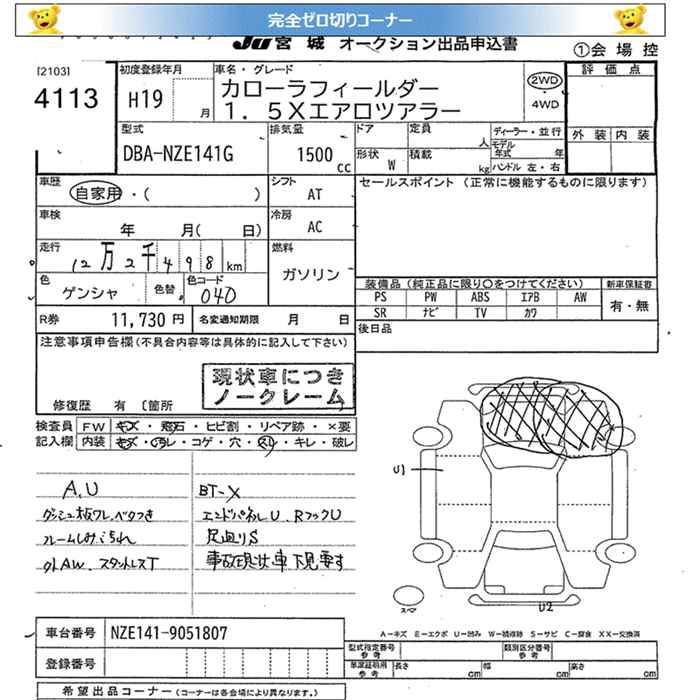 完全ゼロ切りコーナー
JU 宮城 オークション出品申込書
①会場控
[2103]
4113
初度登録年月
H19 月
車名・グレード
カローラフィールダー
1.5Xエアロツアラー
2WD
・
4WD
評価点
外装 内装
型式
DBA-NZE141G
排気量
1500 cc
ドア
定員 人
ディーラー・並行
形状 W
積載 kg
モデル年式 年
ハンドル 左・右
車歴
自家用・( )
シフト
AT
セールスポイント (正常に機能するものに限ります)
車検
年 月( 日)
冷房
AC
走行
12万2千498km
燃料
ガソリン
色
ゲンシャ
色替
色コード
040
装備品(純正品に限り○をつけてください)
新車保証書
PS PW ABS エアB AW
有・無
SR ナビ TV カワ
R券 11,730円
名変通知期限 月 日
後日品
注意事項申告欄(不具合内容等は具体的に記入して下さい)
現状車につき
ノークレーム
修復歴 有 〔箇所
検査員 FW キズ・飛石・ヒビ割・リペア跡・×要
記入欄 内装 キズ・汚レ・コゲ・穴・スレ・キレ・破レ
A.U
ダッシュ板ワレ.ベタつき
ルームしみこられ
外AW.スタットレスT
BT-X
エンドパネルU.RフックU
足廻りS
事故現状車下見要す
U1
スマ
U2
A−キズ E−エクボ U−凹み W−補修跡 S−サビ C−腐食 XX−交換済
車台番号 NZE141-9051807
登録番号
型式指定番号 参考
類別区分番号 参考
車庫証明用 参考
長さ cm
幅 cm
高さ cm
希望出品コーナー(コーナーは各会場により異なります。)